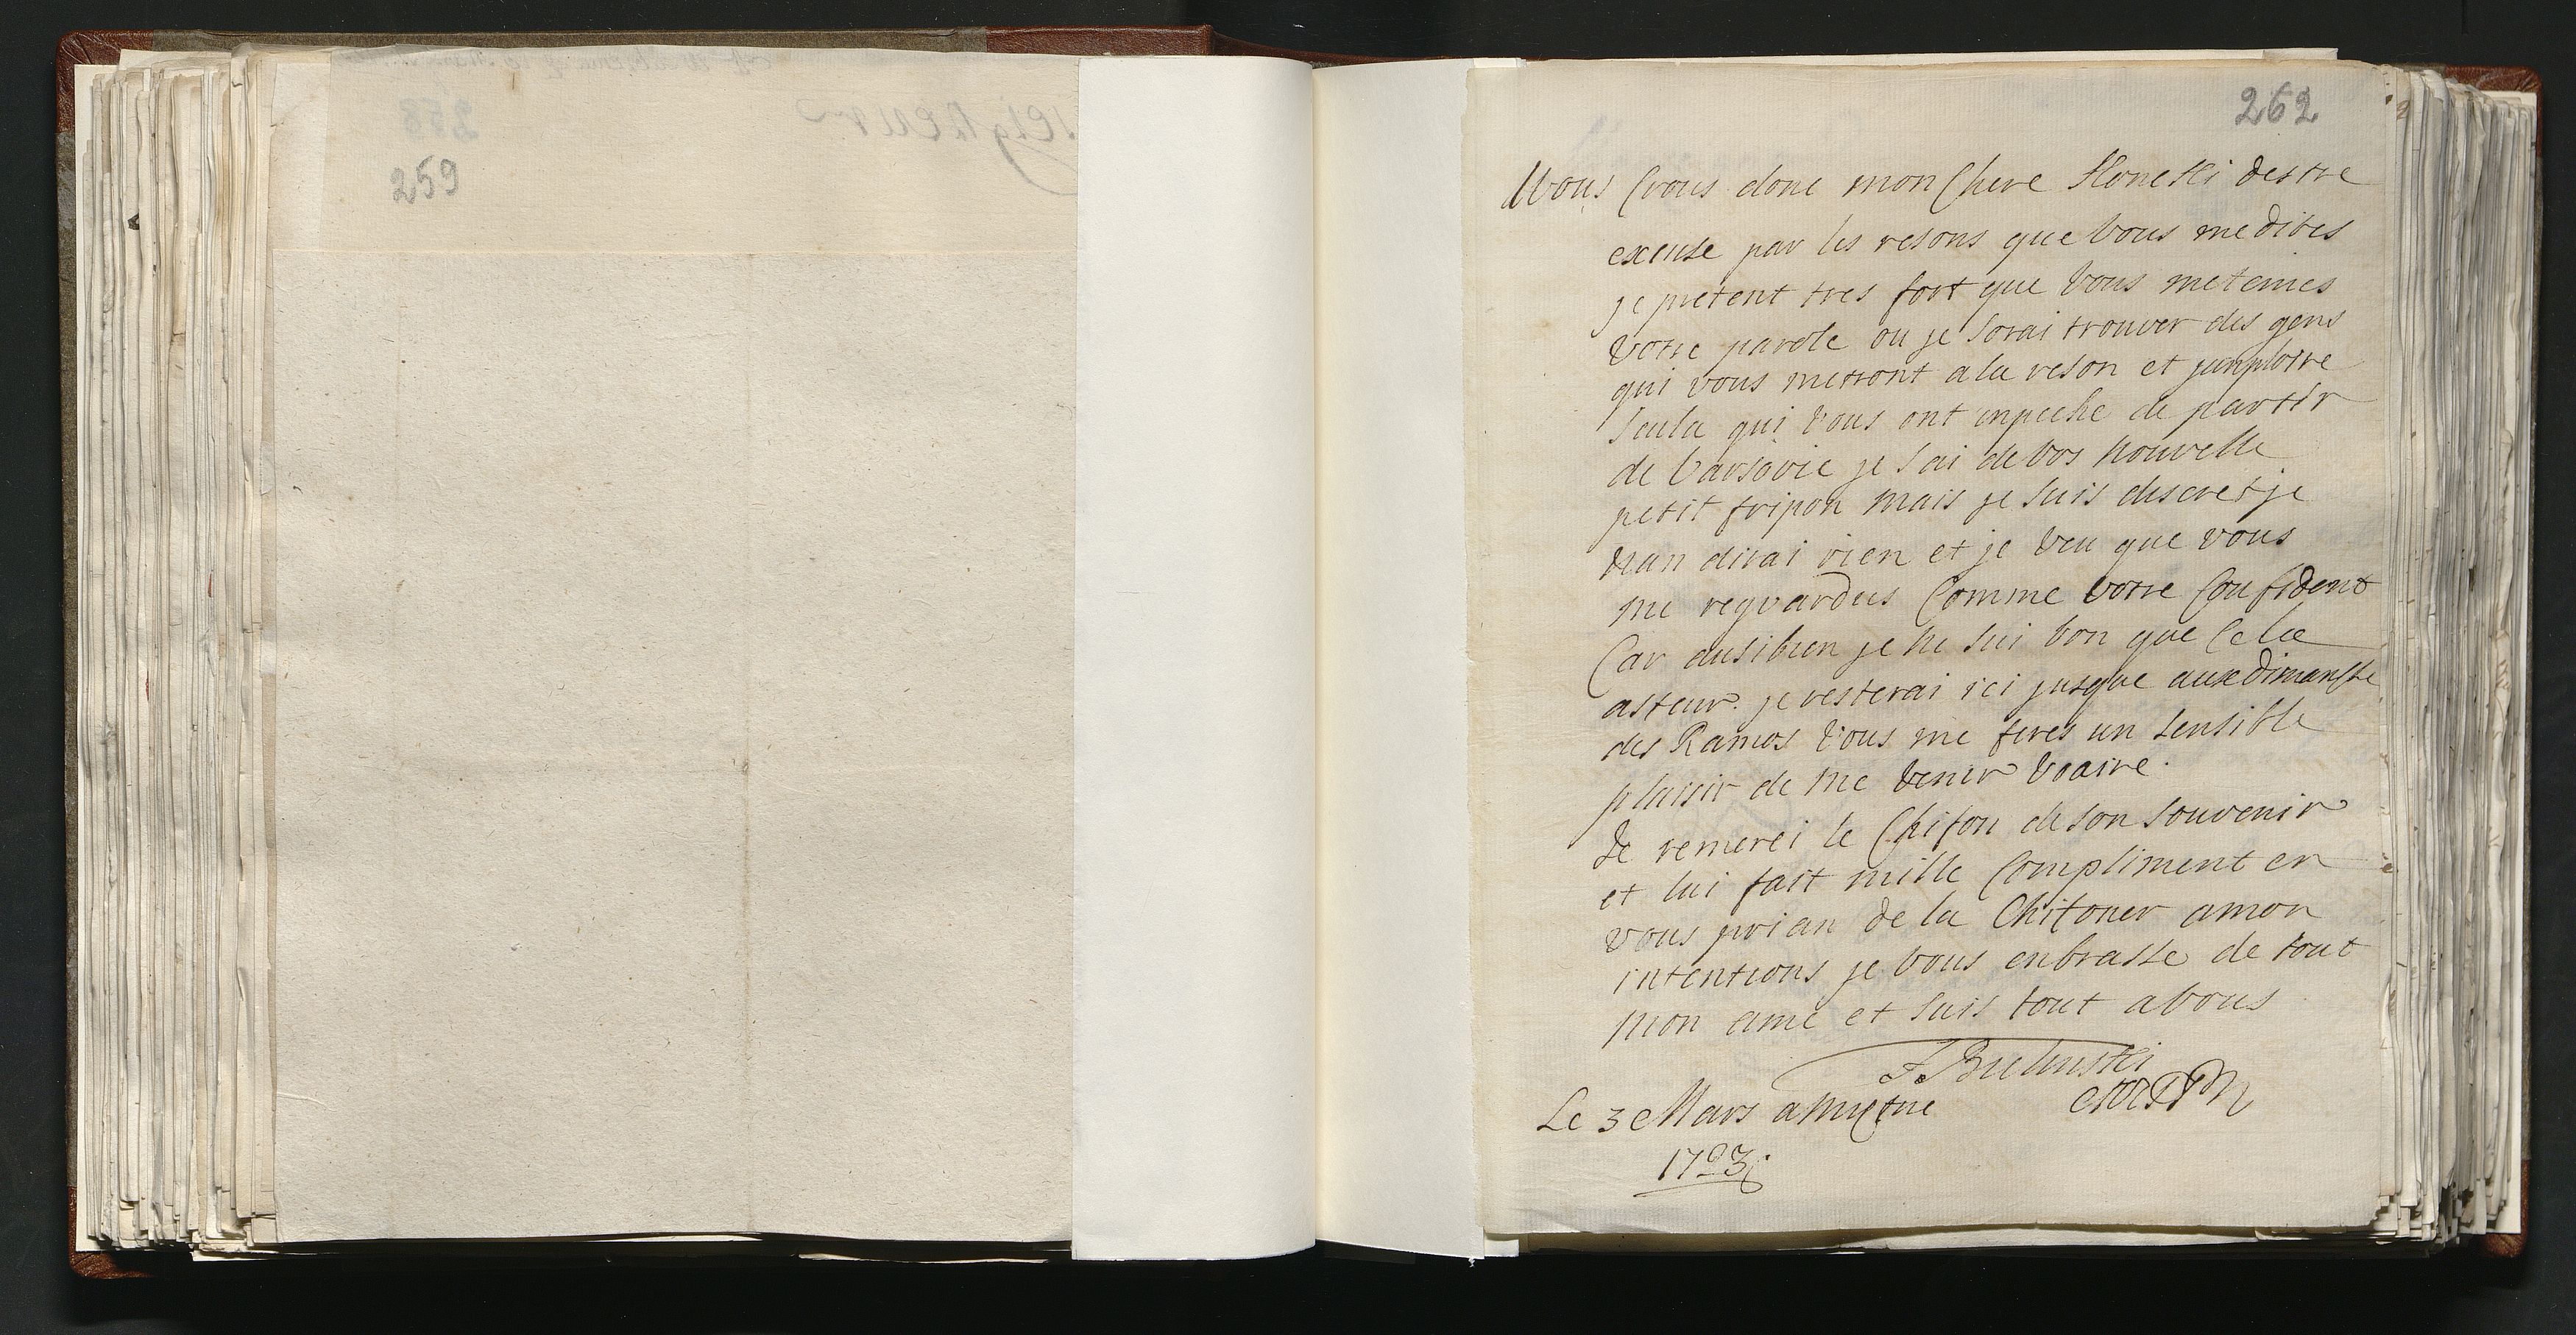 259
262
Vous Crous donc mon Chere Slonski destre
excuse par les resons que Vous me dites
je pretent tres fort que Vous meteines
Votre parole ou je sorai trouver des gens
qui vous metront a la reson et janploire
seula qui Vous ont enpeche de partir
de Varsovie je sai de vos nouvelle
petit fripon mais je suis discret je
nan dirai rien et je veu que vous
me reguardies Comme votre Confident
Car ausibien je ne sui bon que Cela
asteur. je resterai ici jusque aux dimansse
des Ramos Vous me feres un sensible
plaisir de me venir voaire.
Je remerci le Chifon de son souvenir
et lui fait mille Compliment en
vous prian de la Chifoner a mon
intentions je vous enbrasse de tout
mon ame et suis tout a vous
F. Bielinski
Le 3 Mars a
1723